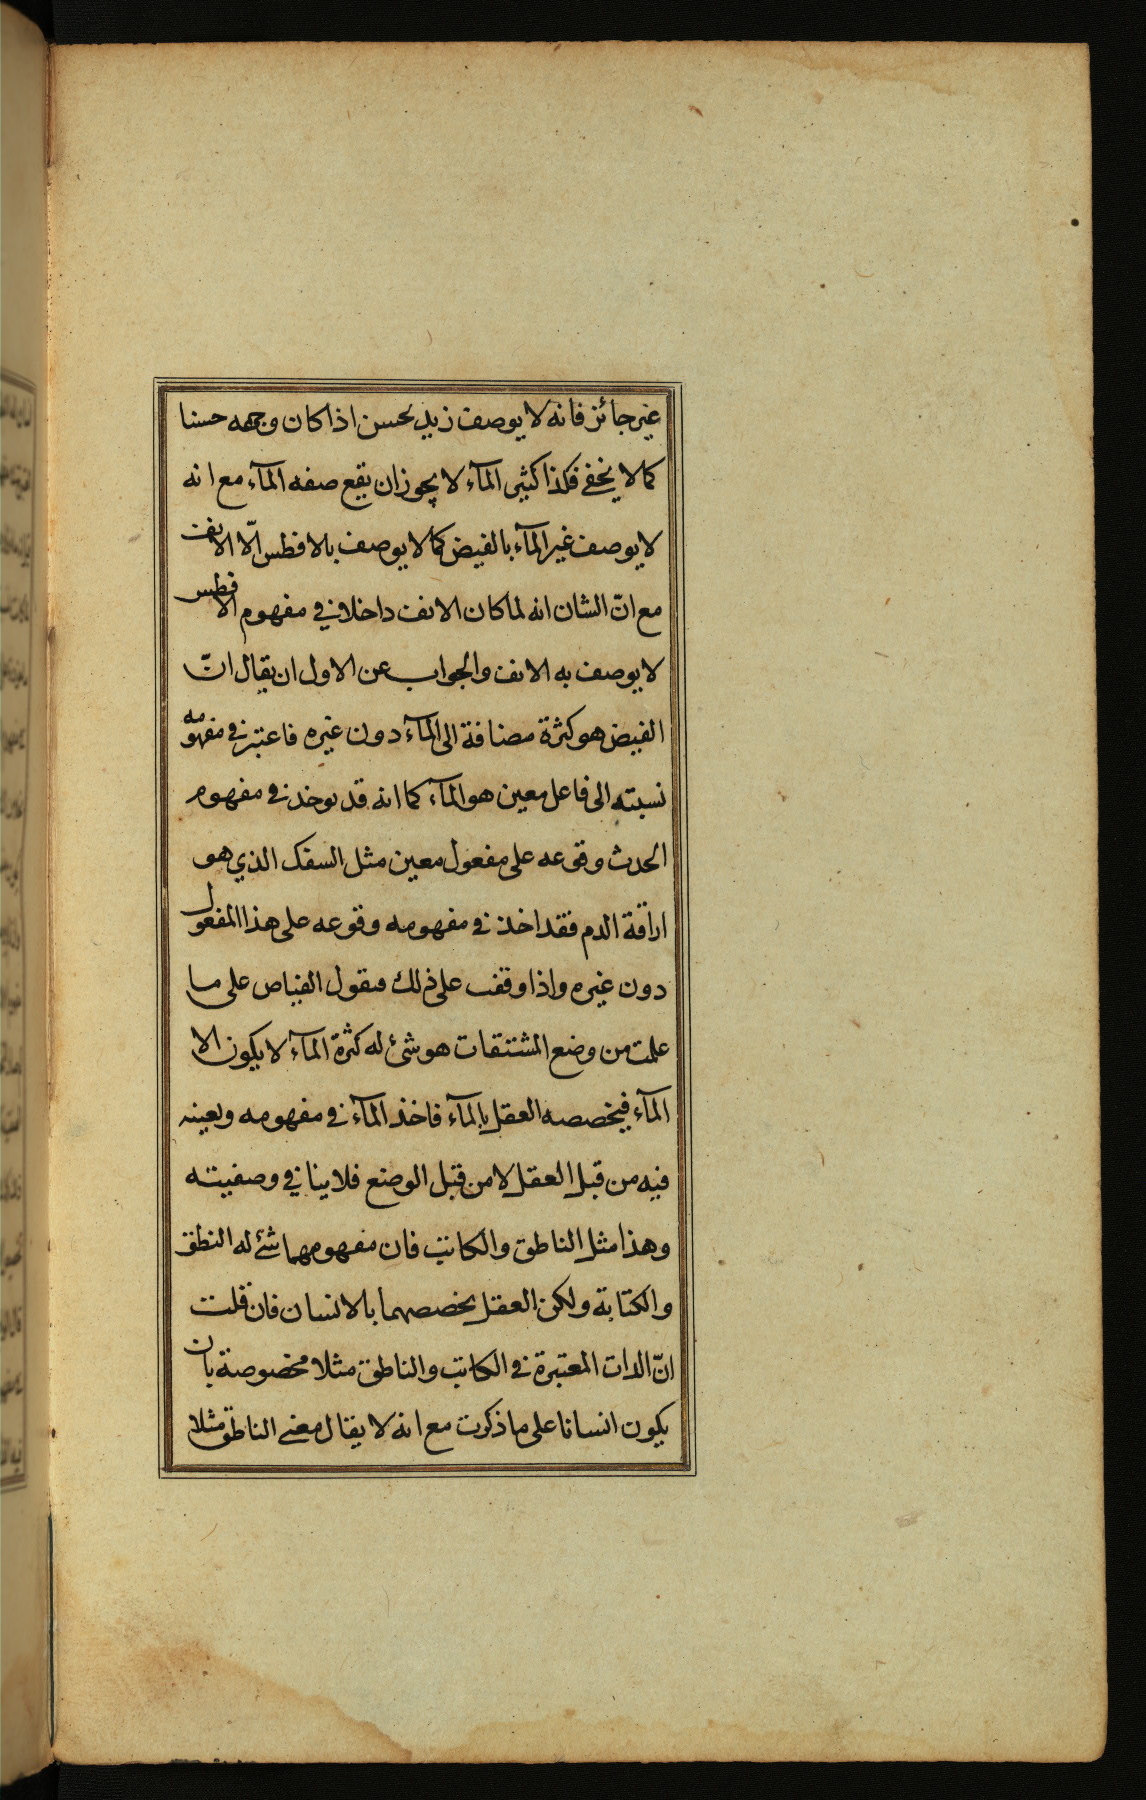 غير جائز فانه لا يوصف زيد بحسن اذا كان وجهه حسنا
كما لا يخفى فكذا كثير المآء لا يجوز ان يقع صفه المآء مع انه
لا يوصف غير المآء بالفيض كما لا يوصف بالافطس الّا الانف
مع انّ الشان انه لما كان الانف داخلا في مفهوم الافطس
لا يوصف به الانف والجواب عن الاول ان يقال انّ
الفيض هو كثرة مضافة الى المآء دون غيره فاعتبر في مفهومه
نسبته الى فاعل معين هو المآء كما انه قد يوخذ في مفهوم
الحدث وقوعه على مفعول معين مثل السفك الذي هو
اراقة الدم فقد اخذ في مفهومه وقوعه على هذا المفعول
دون غيره واذا وقفت على ذلك فنقول الفياض على ما
علمت من وضع المشتقات هو شئ له كثرة المآء لا يكون الا
المآء فيخصصه العقل بالمآء فاخذ المآء في مفهومه وتعينه
فيه من قبل العقل لا من قبل الوضع فلا ينافي وصفيته
وهذا مثل الناطق والكاتب فان مفهومهما شئ له النطق
والكتابة ولكن العقل يخصصهما بالانسان فان قلت
انّ الذات المعتبرة في الكاتب والناطق مثلا مخصوصة بان
يكون انسانا على ما ذكرت مع انه لا يقال معنى الناطق مثلا